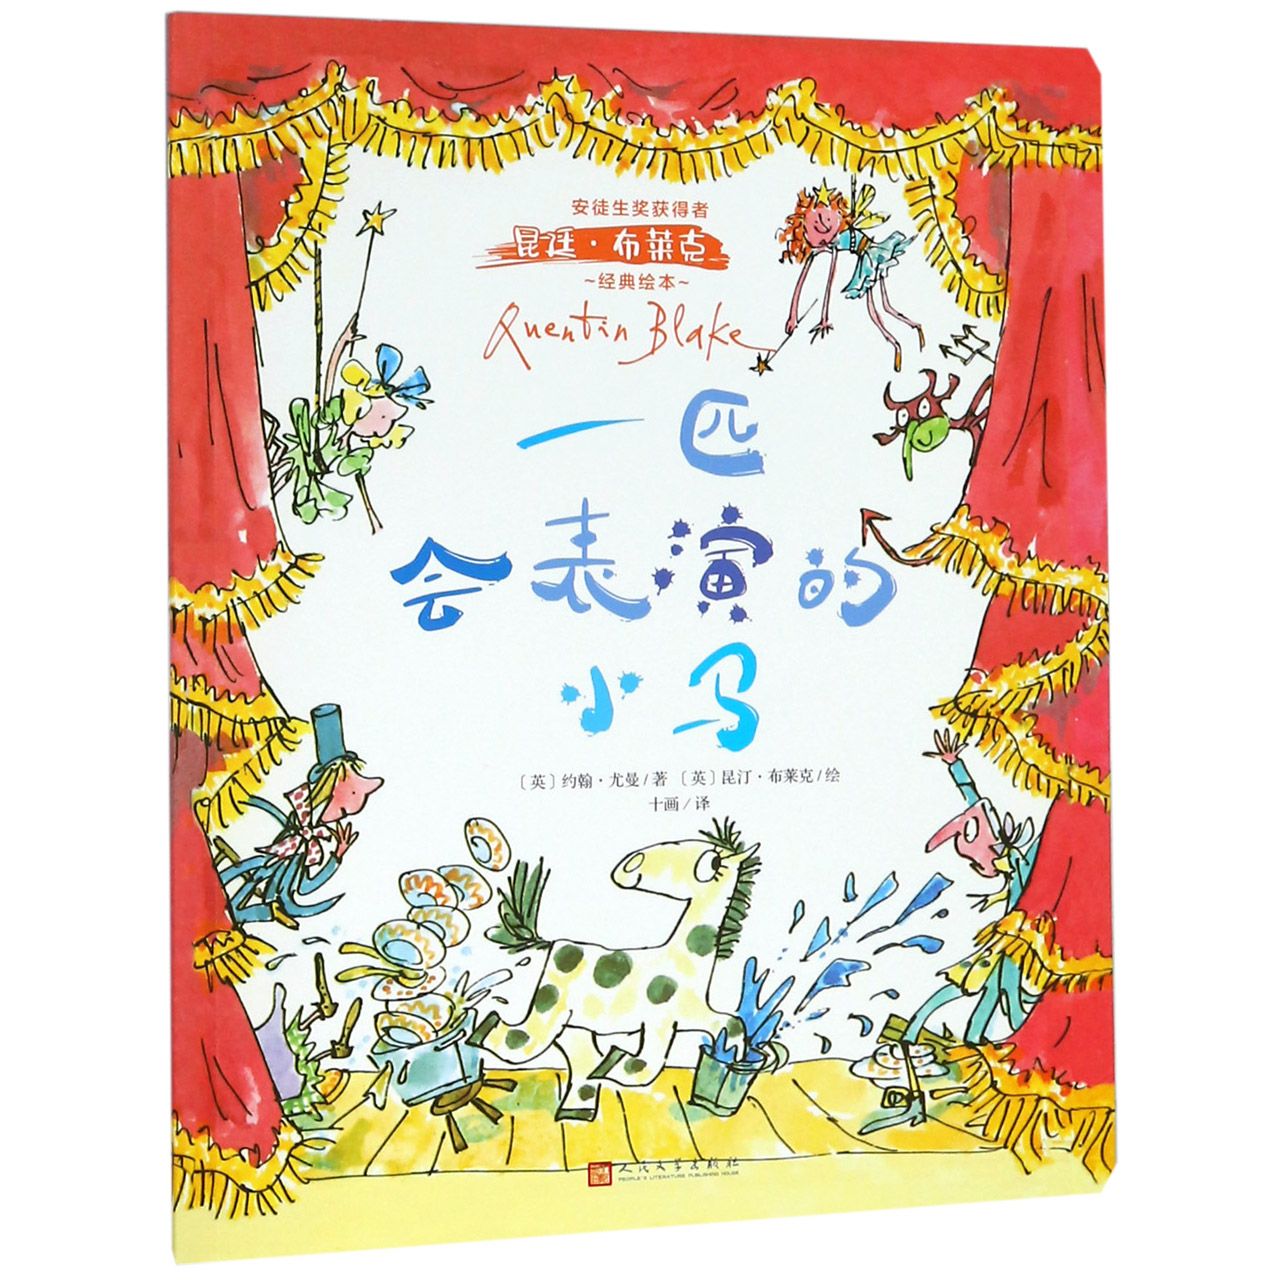 安徒生奖获得者
昆廷·布莱克
~经典绘本~
Quentin Blake
一匹
会表演的
小马
〔英〕约翰·尤曼/著 〔英〕昆汀·布莱克/绘
十画/译
人民文学出版社
PEOPLE'S LITERATURE PUBLISHING HOUSE